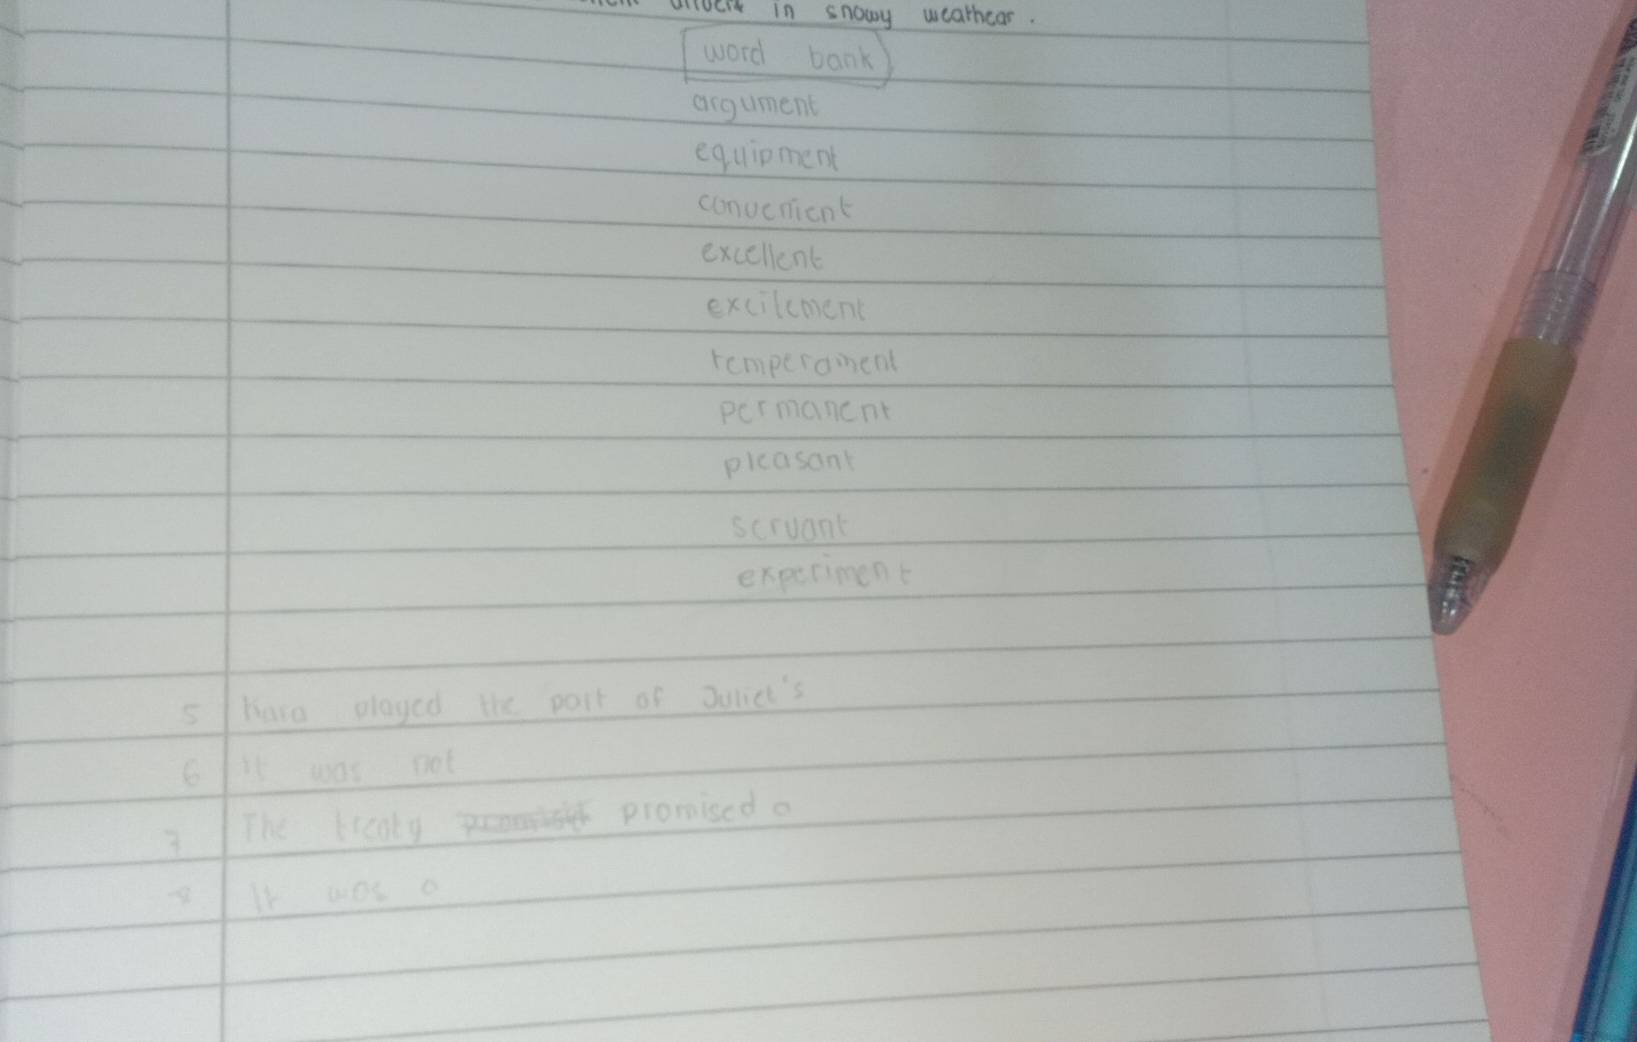 in snowy weathear.
word bank
argument
equipment
convenient
excellent
excitement
temperament
permanent
pleasant
servant
experiment
5 Kara played the part of Juliet's
6 It was not
7 The treaty promised a
8 It was a